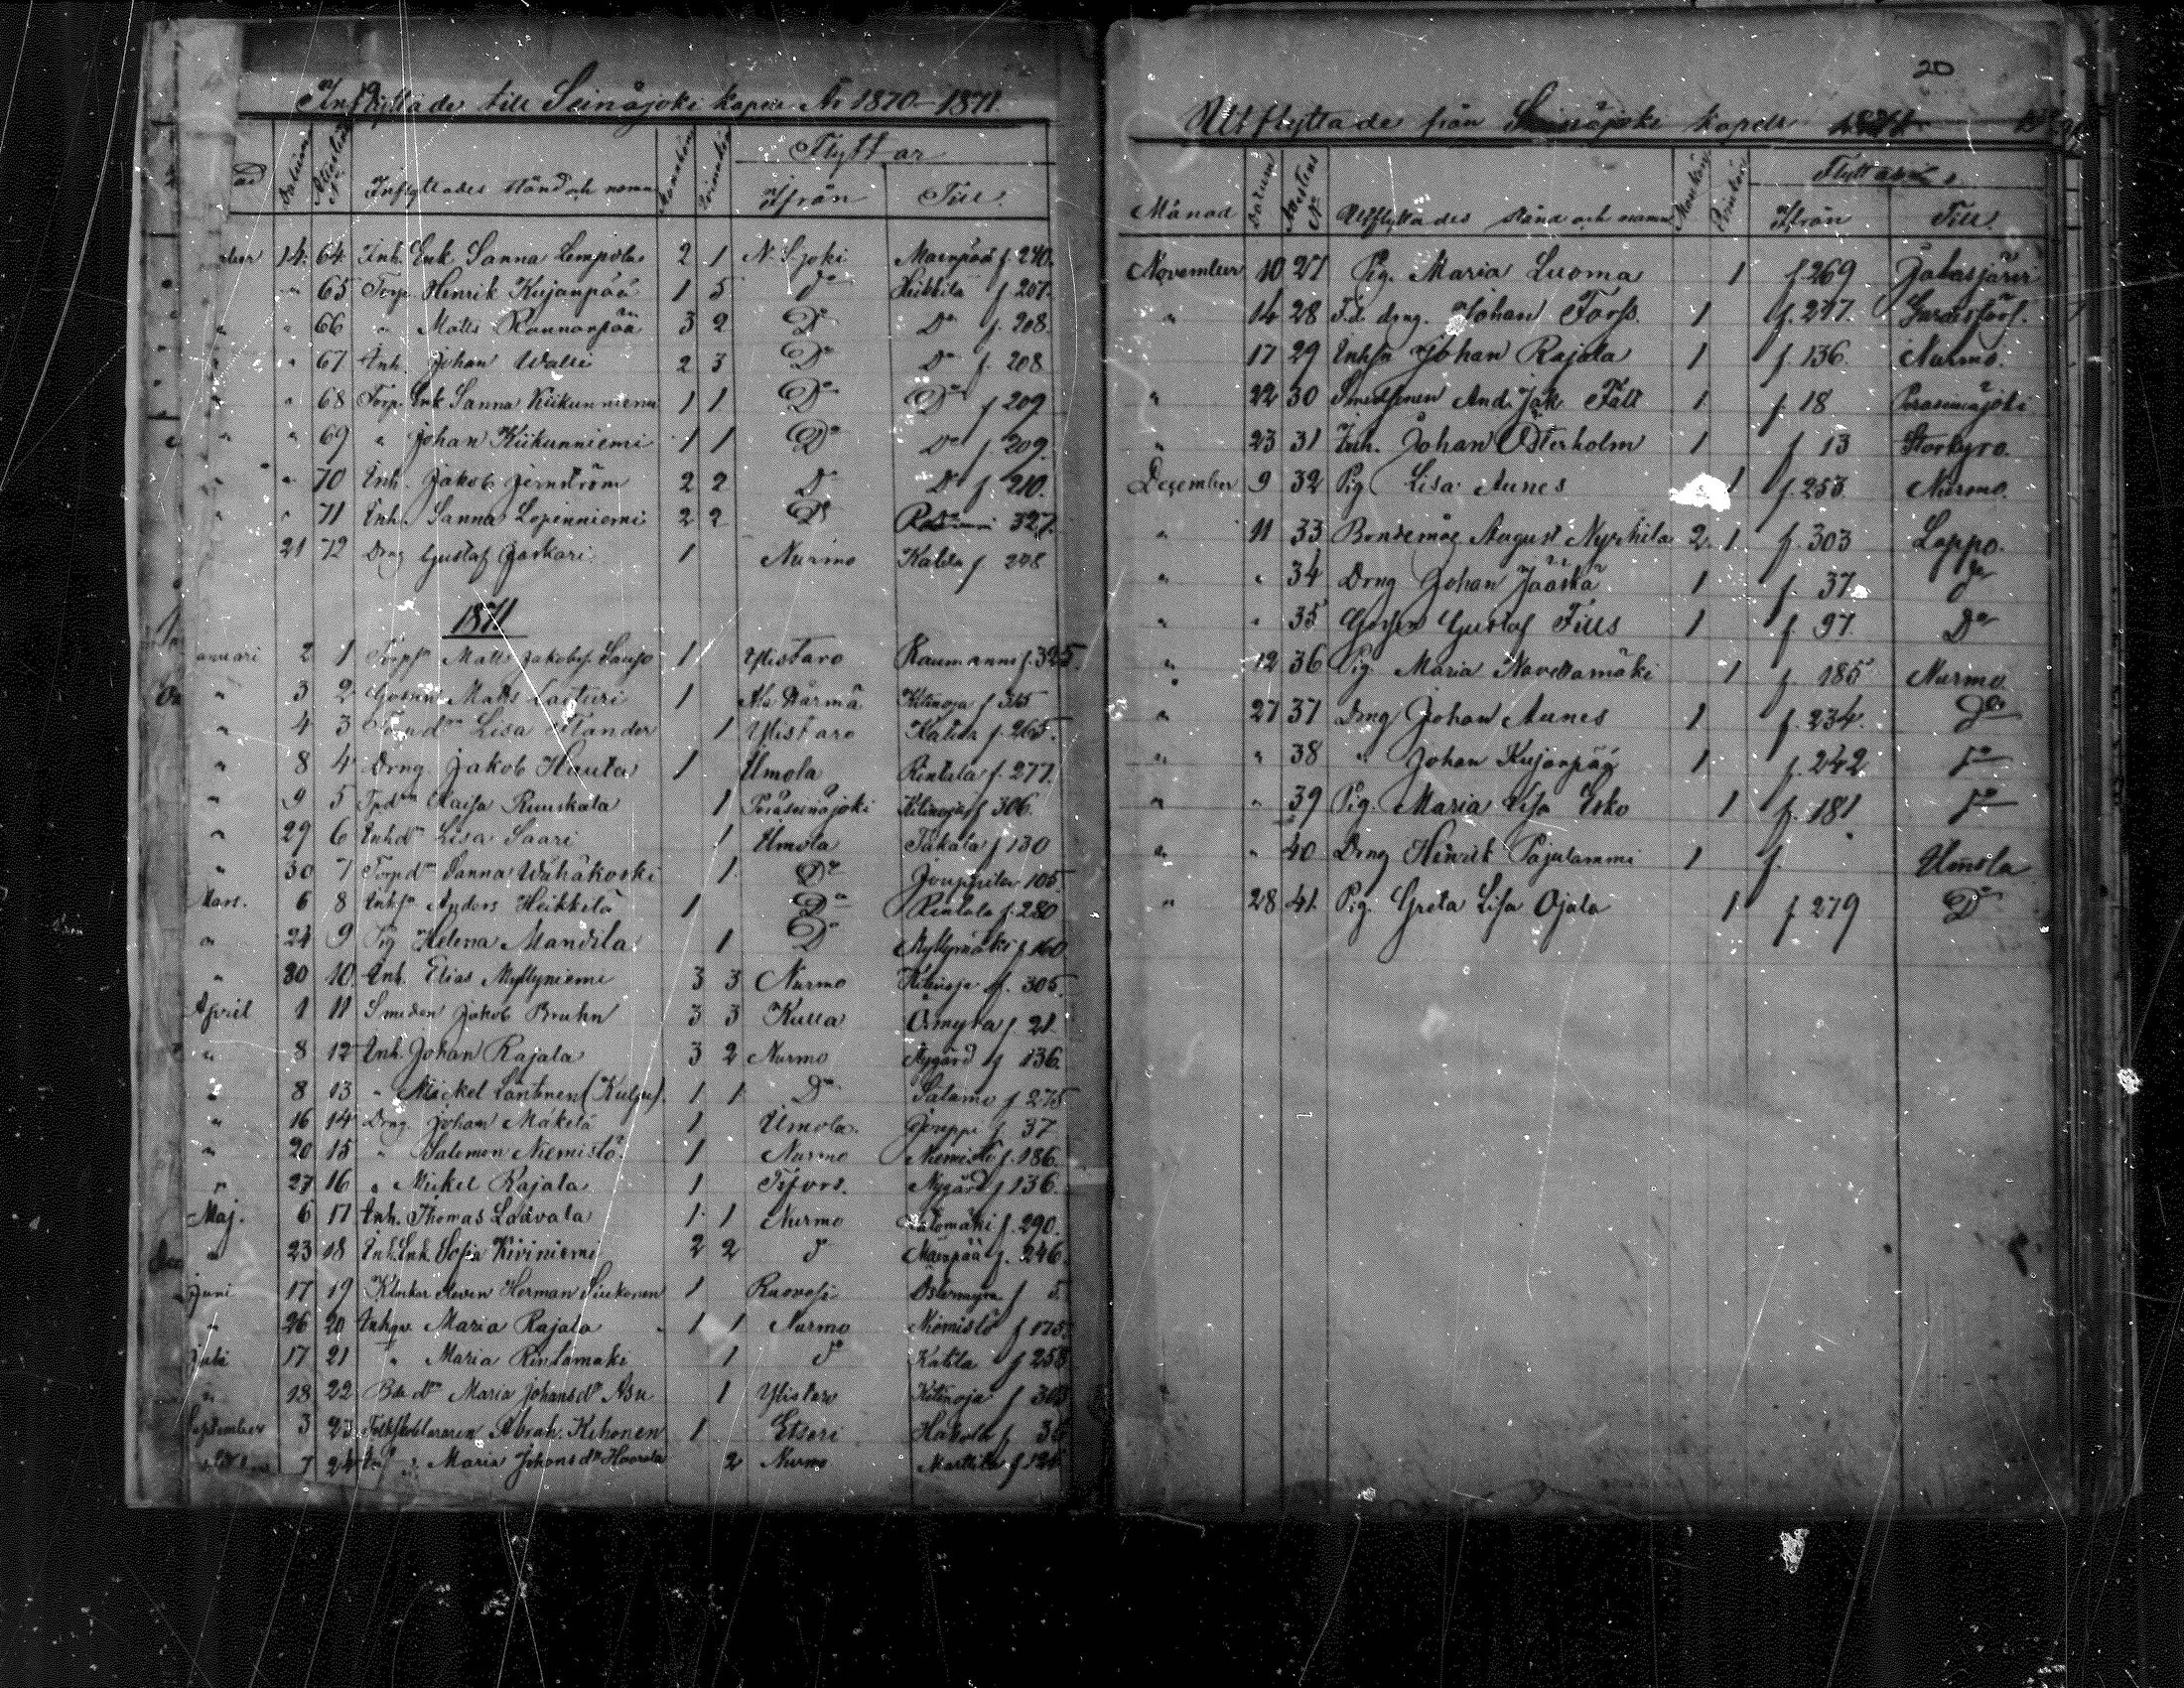 Inflyttade till Seinäjoki kapell År 1870–1871.
Datum Attestens No Inflyttades stånd och namn Mankön Qvinkön Flyttar
ifrån Till
14. 64 Inh. Enk Sanna Lempola 2 1 N. S.joki Mäenpää f. 240.
" 65 Torp. Henrik Kujanpää 1 5 do Heikkilä f. 207.
" " 66 " Matts Rannanpää 3 2 Do Do f. 208.
" " 67 Inh. Johan Walli 2 3 Do Do f. 208
" " 68 Torp. Enk Sanna Kiikunniemi 1 1 Do Do f 209
" " 69 " Johan Kiikunniemi 1 1 Do Do f. 209.
" " 70 Inh. Jakob Jernström 2 2 Do Do f 210.
" " 71 Inh. Sanna Lepenniemi 2 2 Do 327.
21 72 Drng Gustaf Jaskari 1 Nurmo Katila f 248
1871
anuari 2 1 Matts Jakobss. 1 Ylistaro Raumanni f. 325.
" 3 2 Matts 1 Ala Härmä Kitinoja f 315
" 4 3 Lisa Flander 1 Ylistaro Katila f. 265.
" 8 4 Drng. Jakob Hauta 1 Ilmola Rintala f. 277.
" 9 5 Tpdn Kaisa Ruuskala 1 Peräseinäjoki Kitinoja f 306.
" 29 6 Inhdr Lisa Saari 1 Ilmola Takala f 130
" 30 7 Torpdr Sanna Wähäkoski 1 Do Jouppila 105.
Mars. 6 8 Inhsn Anders Heikkilä 1 Do Rintala f. 280
" 24 9 Pig Helena Mandila 1 Do Myllymäki f 160
" 30 10. Inh. Elias Myllyniemi 3 3 Nurmo Kitinoja f. 305.
April 1 11 Smeden Jakob Bruhn 3 3 f. 21.
" 8 12 Inh. Johan Rajala 3 2 Nurmo Nygård f 136.
" 8 13 " Mickel Läntinen 1 1 Do Salamo f 275
" 16 14 Drng. Johan Mäkelä 1 Ilmola. Jouppi f 37
" 20 15 " Salomon Niemistö 1 Nurmo Niemistö f. 186.
" 27 16 " Mickel Rajala 1 Nygård f 136.
Maj. 6 17 Inh. Thomas Laavala 1 1 Nurmo f. 290.
" 23 18 Inh. Enk. Sofia Kiviniemi 2 2 d Mäenpää f. 246.
Juni 17 19 Herman 1 Östermyra f 5.
" 26 20 Inhqv. Maria Rajala 1 1 Nurmo Niemistö f 175.
Juli 17 21 " Maria Rintamäki 1 do Katila f 258
" 18 22 Bdr Maria Johansdr Asu 1 Ylistaro Kitinoja f
September 3 23 Folkskolläraren Abrah. Kihonen 1 Etseri Hakola f
7 24 Maria Johansdr Haarala 2 Nurmo Marttila f
20
Utflyttade från Seinäjoki kapell
Flyttar
Månad Datum Attestens No Utflyttades stånd och namn Mankön Qvinkön ifrån Till.
November 10 27 Pig. Maria Luoma 1 f 269 Jalasjärvi
" 14 28 F.d. drng. Johan Forss. 1 f. 297.
17 29 Inhsn Johan Rajala 1 f. 136. Nurmo.
" 22 30 And. Jak Fält 1 f. 18 Peräseinäjoki
" 23 31 Inh. Johan Österholm 1 f 13 Storkyro.
December 9 32 Pig Lisa Aunes 1 f. 253. Nurmo.
" 11 33 Bondemåg August Nyrhilä 2. 1. f. 303 Lappo.
" " 34 Drng Johan Jääskä 1 f. 37. do
" " 35 Gustaf Tills 1 f. 97. Do
" 12 36 Pig Maria Havettamäki 1 f 185 Nurmo.
" 27 37 Drng Johan Aunes 1 f. 234. Do
" " 38 " Johan Kujanpää 1 f. 242 do
" " 39 Pig. Maria Lisa Esko 1 f. 181 do
" " 40 Drng Henrik Pajulammi 1 f. Ilmola
" 28 41. Pig. Greta Lisa Ojala 1 f 279 Do